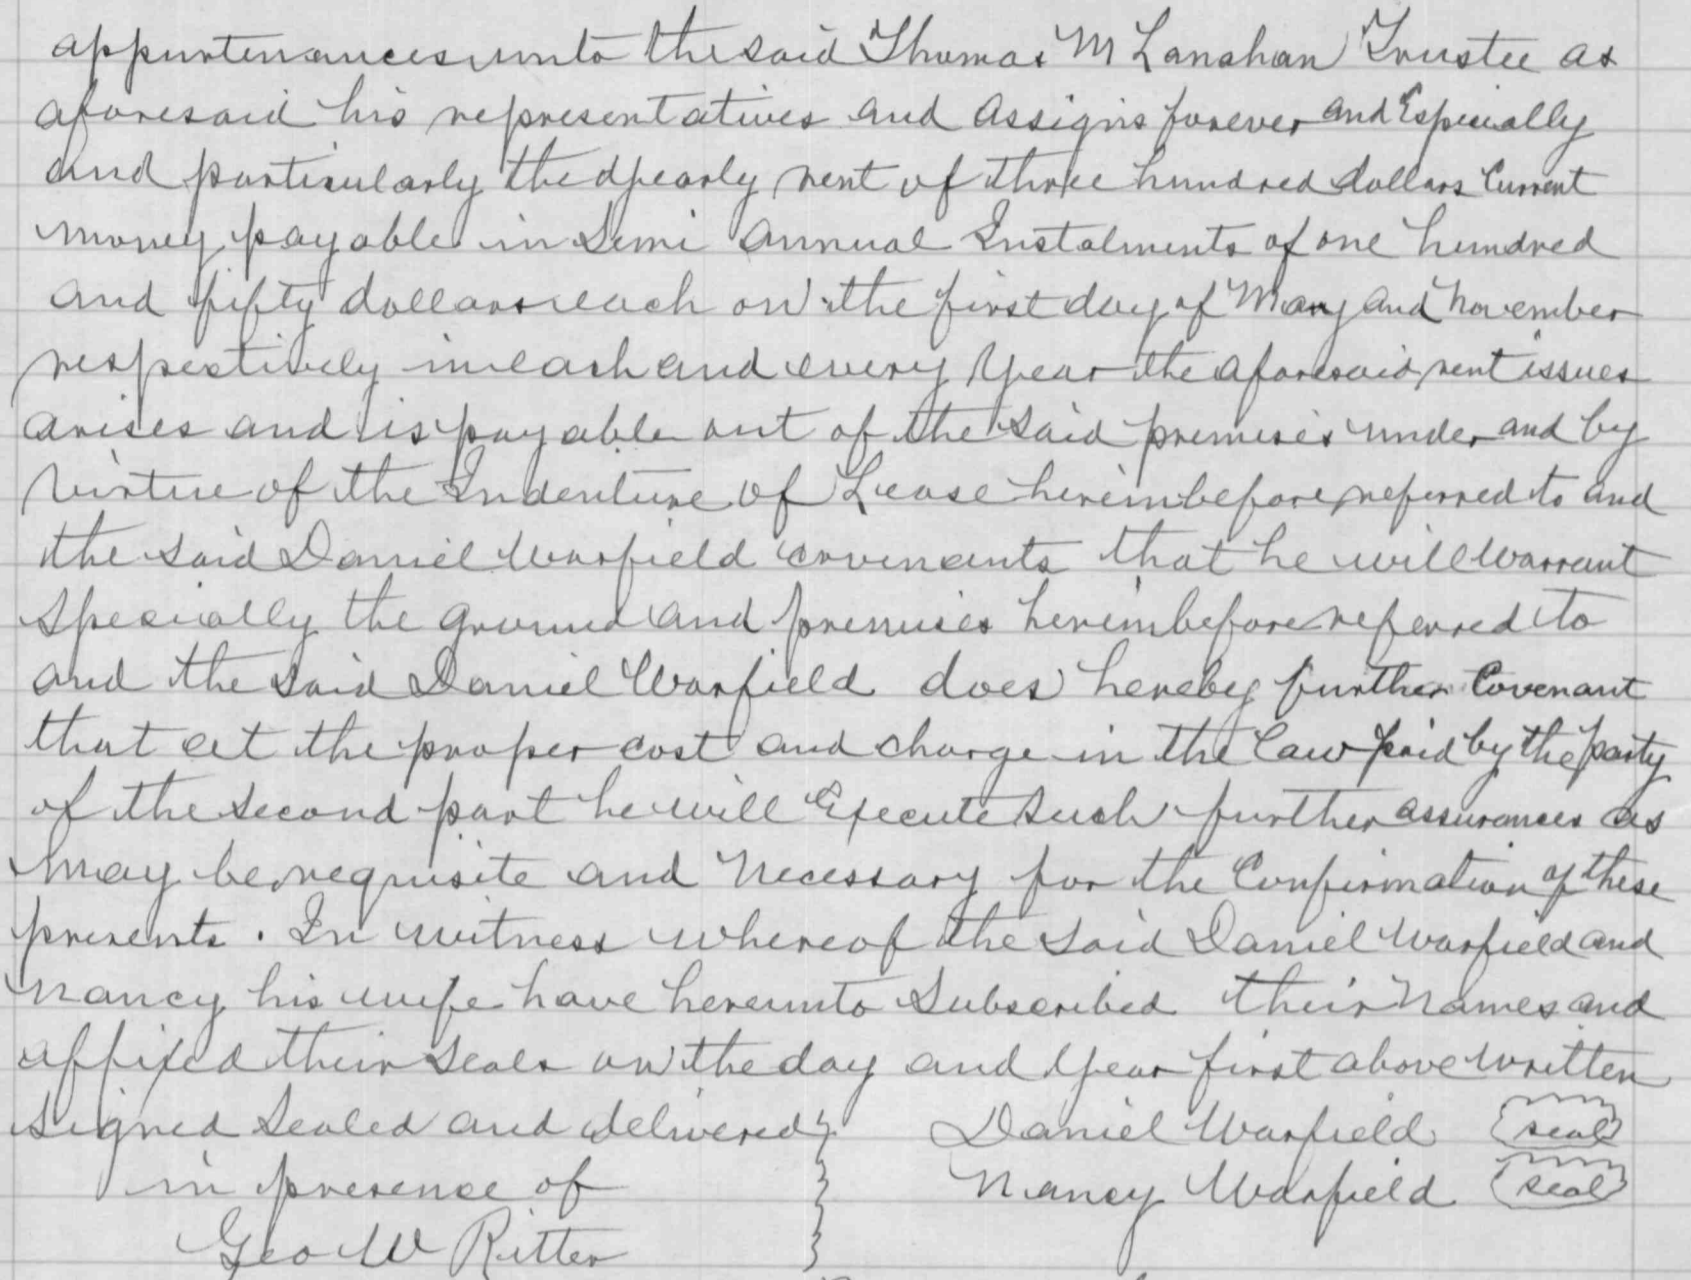 appurtenances unto the said Thomas M Lanahan Trustee as
aforesaid his representatives and assigns forever and Especially
and particularly the yearly rent of three hundred dollars Current
money payable in Semi Annual Instalments of one hundred
and fifty dollars each on the first day of May and November
respectively in each and every year the aforesaid rent issues
arises and is payable out of the said premises under and by
virtue of the Indenture of Lease hereinbefore referred to and
the said Daniel Warfield covenants that he will Warrant
specially the ground and premises hereinbefore referred to
and the said Daniel Warfield does hereby further Covenant
that at the proper cost and charge in the law paid by the party
of the second part he will Execute such further assurances as
may be requisite and Necessary for the Confirmation of these
presents. In witness whereof the said Daniel Warfield and
Nancy his wife have hereunto Subscribed their Names and
affixed their seals on the day and year first above written
signed sealed and delivered } Daniel Warfield (seal)
in presence of } Nancy Warfield (seal)
Geo W Ritter }